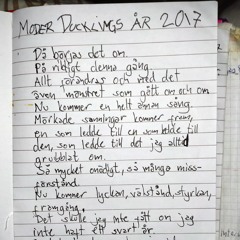 MODER DUCKLINGS ÅR 2017
Då börjas det om.
På riktigt denna gång.
Allt förändras och med det
även mönstret som gått om och om
Nu kommer en helt annan sång.
Mörkade sanningar kommer fram,
en som ledde till en som ledde till
den, som ledde till det jag alltid
grubblat om.
Så mycket onödigt, så många miss-
förstånd.
Nu kommer lyckan, välstånd, styrkan,
framgång.
Det skulle jag inte fått om jag
inte haft ett svart år.